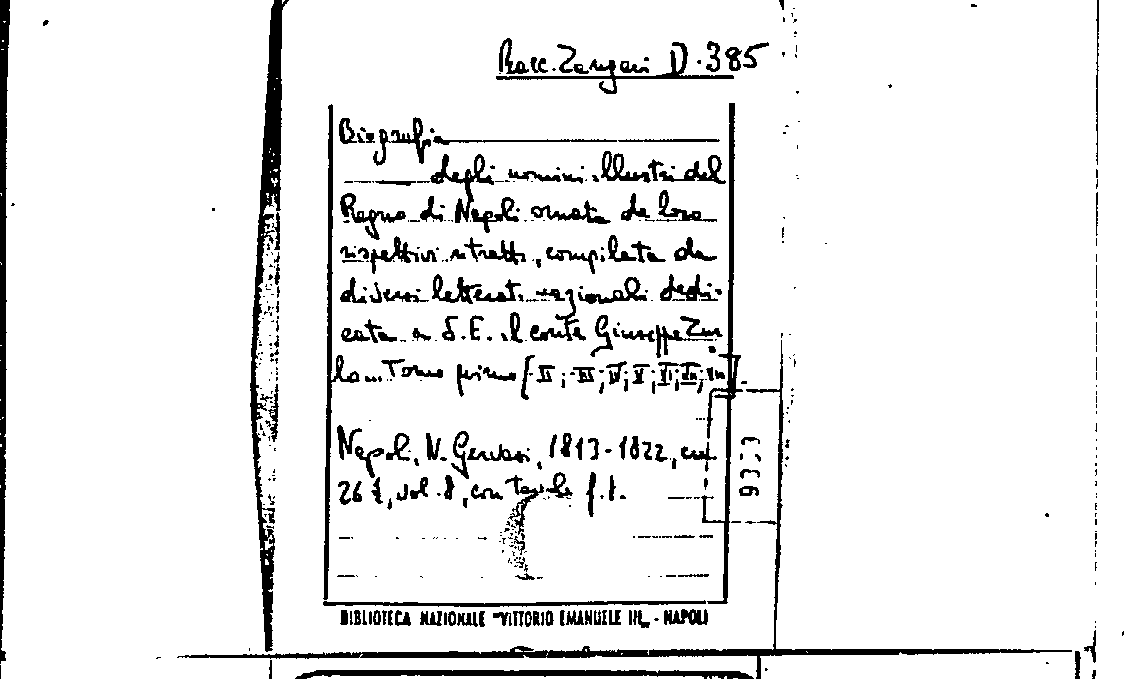 Racc. Zangari D.385
Biografia
degli uomini illustri del
Regno di Napoli ornata de loro
rispettivi ritratti, compilata da
diversi letterati nazionali dedi-
cata a S.E. il conte Giuseppe Zur
lo... Tomo primo [-II; -III; IV; V; VI; VII; VIII]
Napoli, N. Gervasi, 1813-1822, cm
26 ½, vol. 8, con tavole f.t.
BIBLIOTECA NAZIONALE "VITTORIO EMANUELE III„ - NAPOLI